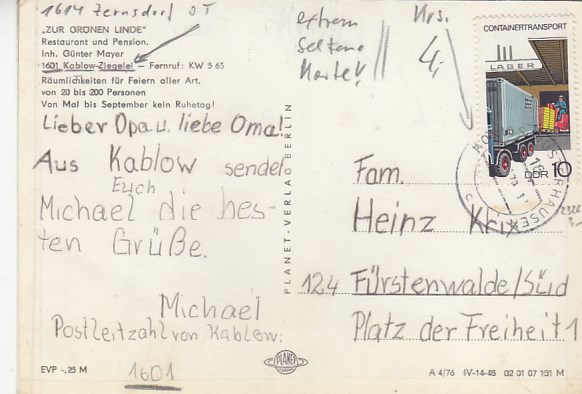 1614 Zernsdorf OT
„ZUR GRÜNEN LINDE"
Restaurant und Pension.
Inh. Günter Mayer
1601 Kablow-Ziegelei – Fernruf: KW 5 65
Räumlichkeiten für Feiern aller Art,
von 20 bis 200 Personen
Von Mai bis September kein Ruhetag!
extrem
seltene
Karte!
Krs.
4,
CONTAINERTRANSPORT
LAGER
DDR 10
Lieber Opa u. liebe Oma!
Aus Kablow sendet
Euch
Michael die bes-
ten Grüße.
Michael
Postleitzahl von Kablow:
1601
PLANET-VERLAG BERLIN
Fam.
Heinz Krix
124 Fürstenwalde/Süd
Platz der Freiheit 1
2326
EVP -,25 M
PLANET
A 4/76 IV-14-48 02 01 07 181 M